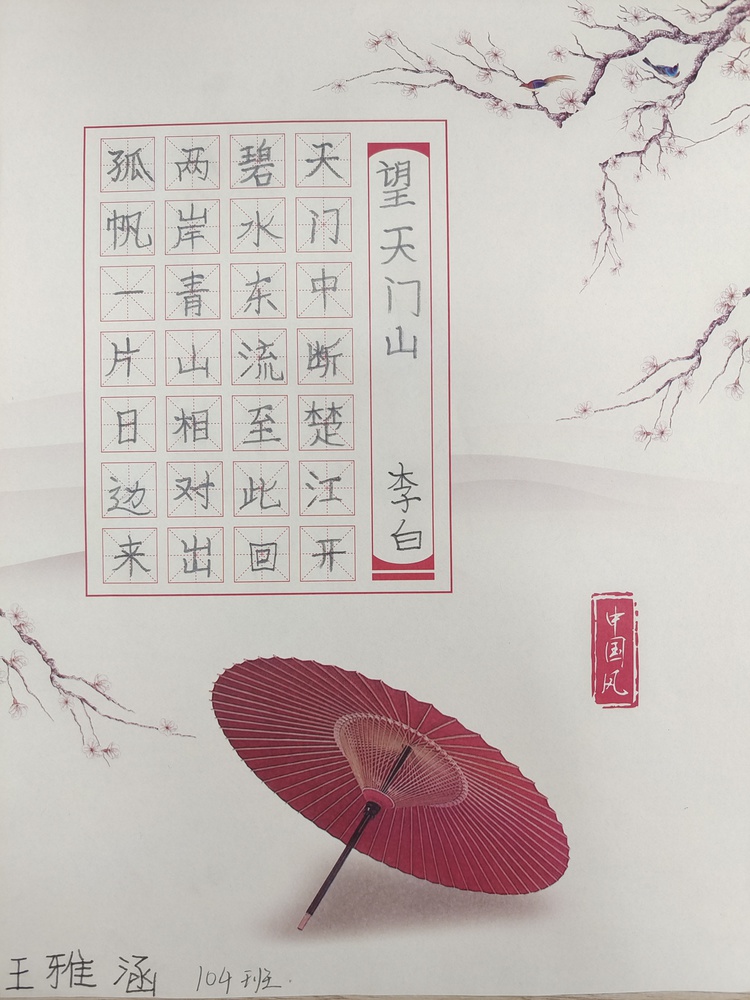 望天门山 李白
天门中断楚江开
碧水东流至此回
两岸青山相对出
孤帆一片日边来
中国风
王雅涵 104班.